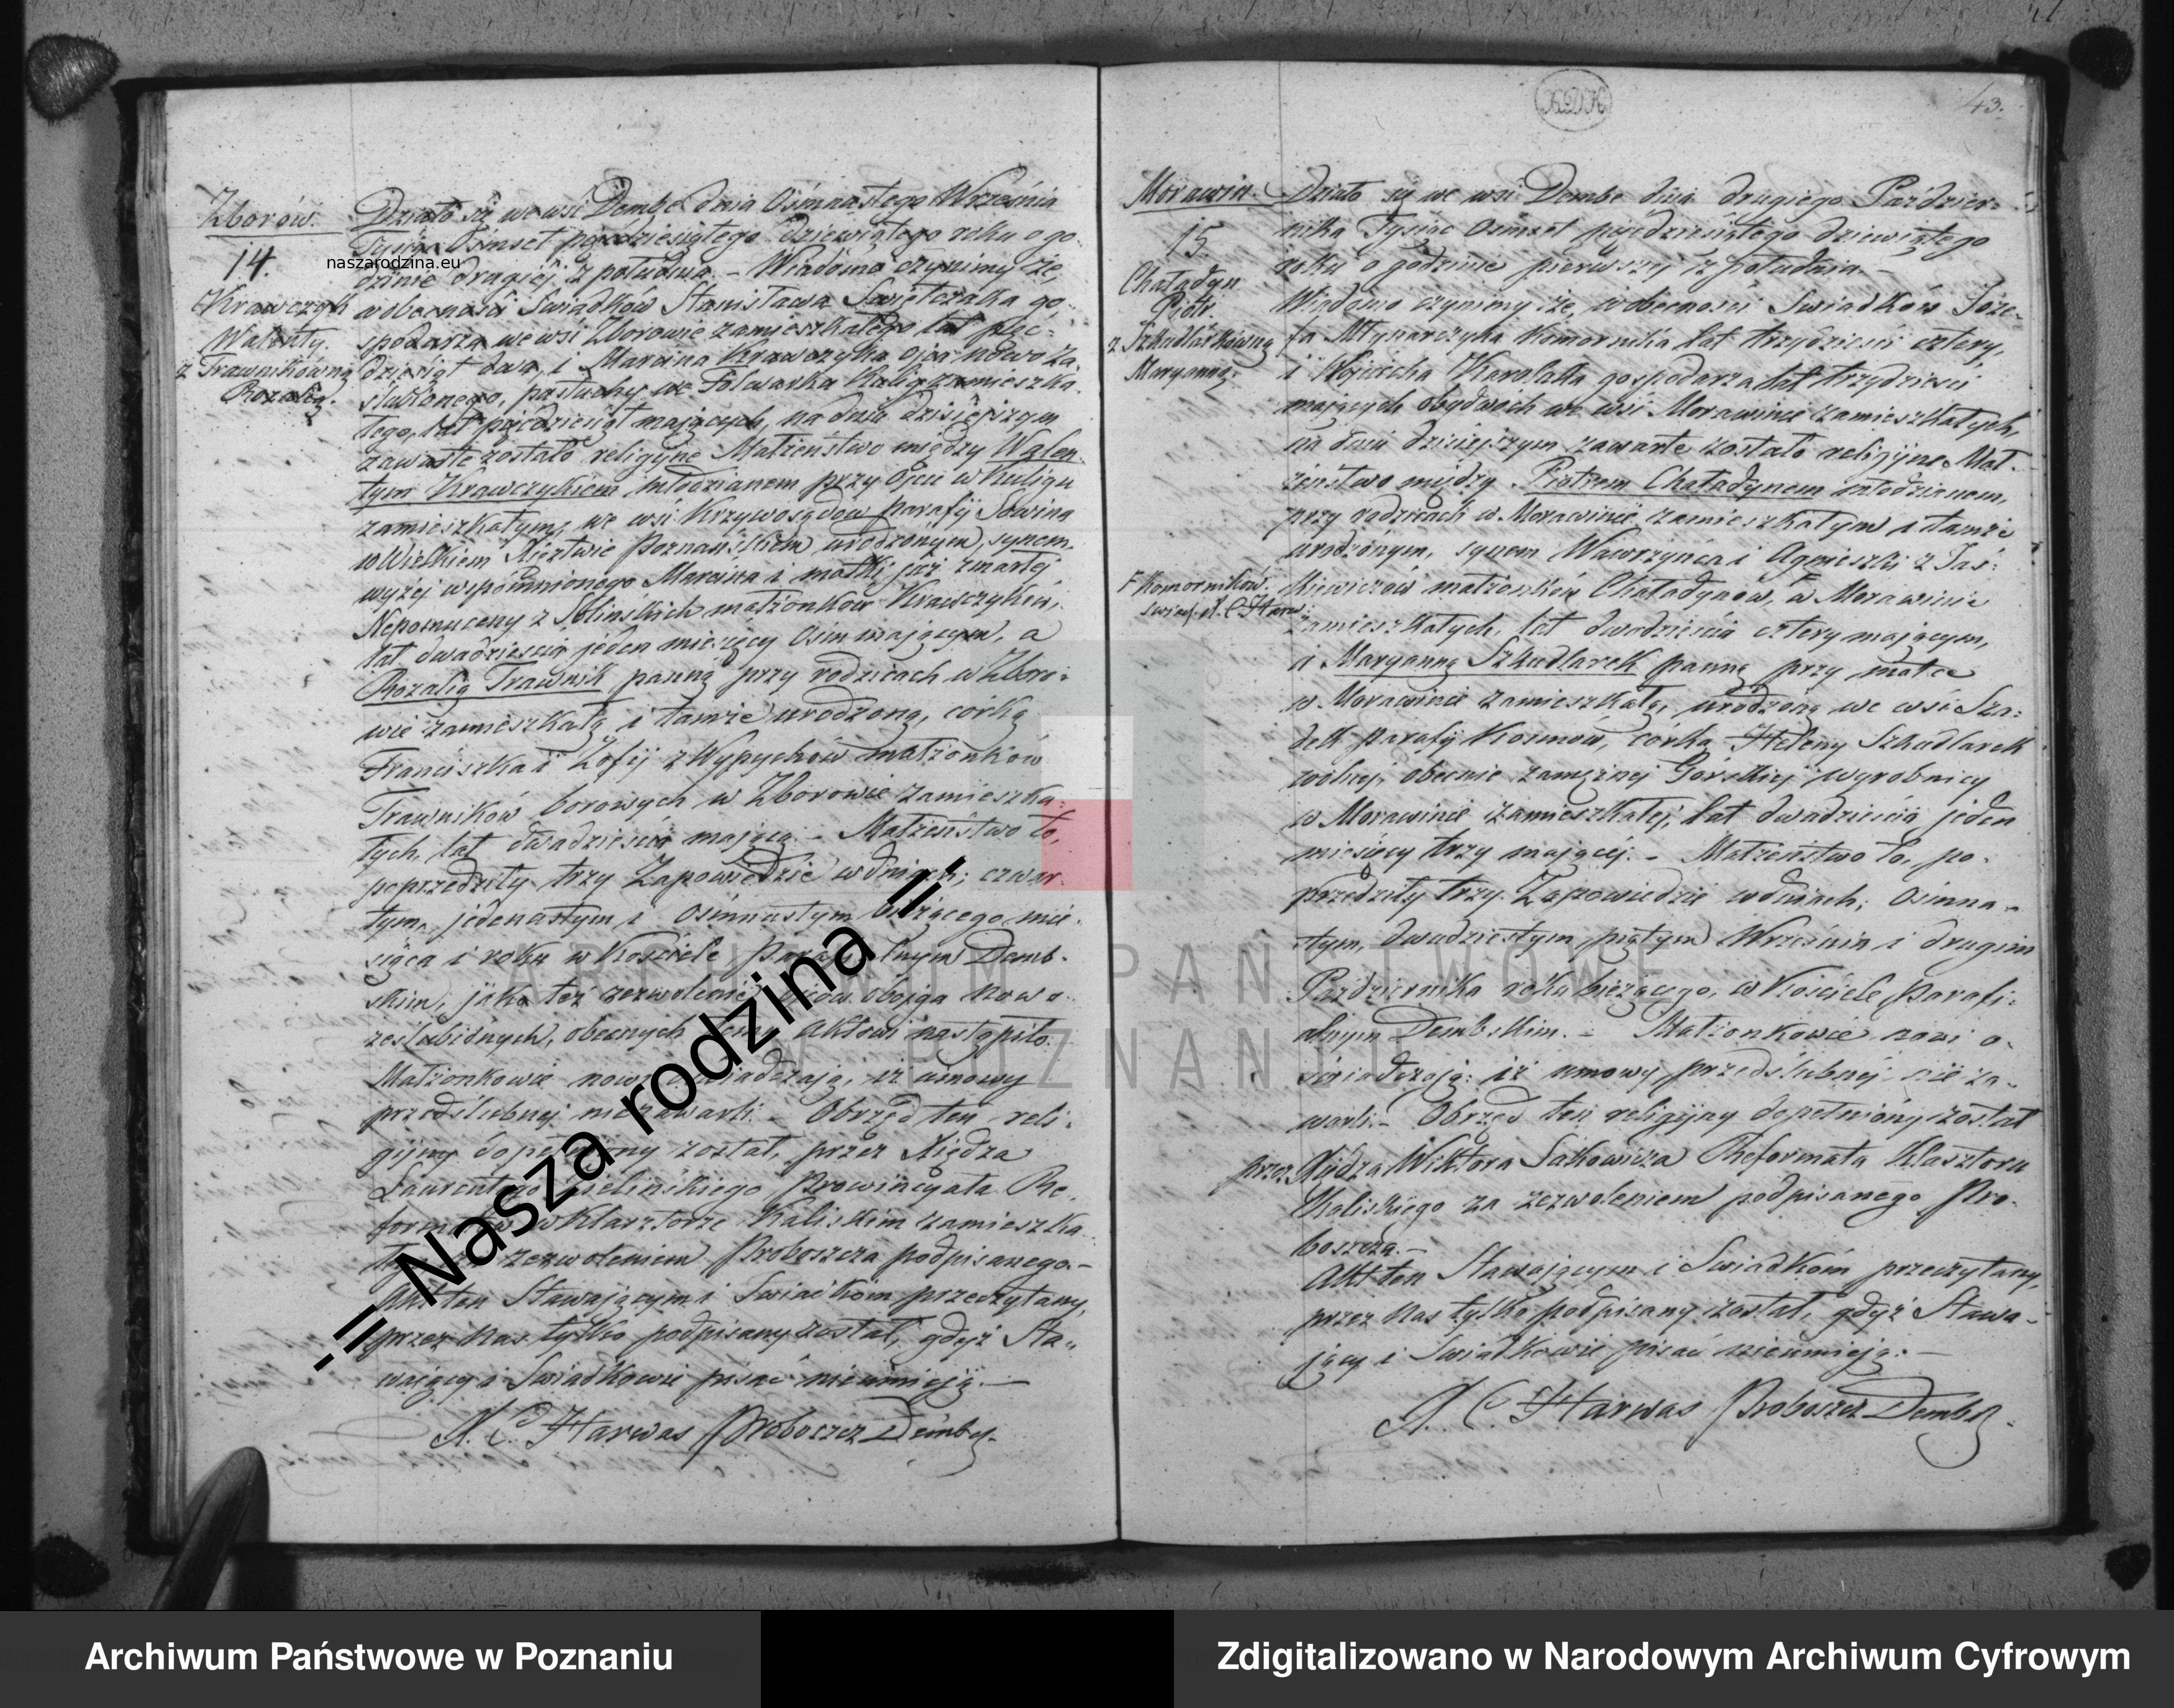 Zborów.
14.
Krawczyk
Walenty.
z Trawnikówną
Rozalią.
naszarodzina.eu
Działo się we wsi Dembe dnia Ośmnastego Września
Tysiąc Ośmset pięćdziesiątego dziewiątego roku o go-
dzinie drugiéj z południa. – Wiadomo czynimy że,
w obecności Świadków Stanisława Świętczaka go-
spodarza we wsi Zborowie zamieszkałego lat pięć-
dziesiąt dwa, i Marcina Krawczyka ojca nowoza-
ślubionego, pastuchy we Folwarku zamieszka-
łego, lat pięćdziesiąt mających, na dniu dzisiejszym
zawarte zostało religijne Małżeństwo między Walen-
tym Krawczykiem młodzianem przy Ojcu w
zamieszkałym, we wsi Krzywosądow parafij Sowina
w Wielkiem Księztwie Poznańskiem urodzonym, synem
wyżéj wspomnionego Marcina i matki już zmarłej
Nepomuceny z małżonków Krawczyków,
lat dwadzieścia jeden miesięcy Ośm mającym, a
Rozalią Trawnik panną przy rodzicach w Zboro-
wie zamieszkałą i tamże urodzoną, córką
Franciszka i Zofij z Wypychów małżonków
Trawników borowych w Zborowie zamieszka-
łych, lat dwadzieścia mającą. – Małżeństwo to,
poprzedziły trzy Zapowiedzie w dniach; czwar-
tym, jedenastym i ośmnastym bieżącego mie-
siąca i roku w Kościele Parafialnym Demb-
skim, jako też zezwolenie ojców obojga nowo-
zaślubionych, obecnych temu Aktowi nastąpiło.
Małżonkowie nowi oświadczają, iż umowy
przedślubnej niezawarli. – Obrzęd ten reli-
gijny dopełniony został, przez Księdza
Laurentego Zielińskiego Prowincyała Re-
formatów w Klasztorze Kaliskim zamieszka-
łego za zezwoleniem Proboszcza podpisanego. –
Akt ten Stawającym i Świadkom przeczytany,
przez Nas tylko podpisany został, gdyż Sta-
wający i Świadkowie pisać nieumieją. –
X. C. Harwas Proboszcz Dembs.
-= Nasza rodzina =-
43.
Morawin.
15.
Chaładyn
Piotr.
z Szkudlarkówną
Maryanną.
F Komorników.
świad. X. C. Harw:
Działo się we wsi Dembe dnia drugiego Paździer-
nika Tysiąc Ośmset pięćdziesiątego dziewiątego
roku o godzinie pierwszej z południa. –
Wiadomo czynimy że, w obecności Świadków Józe-
fa Młynarczyka Komornika lat trzydzieści cztery,
i Wojciecha Karolaka gospodarza lat trzydzieści
mających obydwoch we wsi Morawinie zamieszkałych,
na dniu dzisiejszym zawarte zostało religijne Mał-
żeństwo między Piotrem Chaładynem młodzianem,
przy rodzicach w Morawinie zamieszkałym i tamże
urodzonym, synem Wawrzyńca i Agnieszki z Jaś-
kiewiczów małżonków Chaładynów, w Morawinie
zamieszkałych, lat dwadzieścia cztery mającym,
a Maryanną Szkudlarek panną przy matce
w Morawinie zamieszkałą, urodzoną we wsi Sza-
dek parafij Kosmów, córką Heleny Szkudlarek
wolnej, obecnie zamężnej Górskiej wyrobnicy
w Morawinie zamieszkałej, lat dwadzieścia jeden
miesięcy trzy mającej. – Małżeństwo to, po-
przedziły trzy Zapowiedzie w dniach; Ośmna-
stym, dwudziestym piątym Września i drugim
Października roku bieżącego, w Kościele parafi-
alnym Dembskim. – Małżonkowie nowi o-
świadczają: iż umowy przedślubnéj nieza-
warli. – Obrzęd ten religijny dopełniony został
przez Księdza Wiktora Sakowicza Reformata Klasztoru
Kaliskiego za zezwoleniem podpisanego Pro-
boszcza. –
Akt ten Stawającym i Świadkom przeczytany,
przez Nas tylko podpisany został, gdyż Stawa-
jący i Świadkowie pisać nieumieją. –
X. C. Harwas Proboszcz Dembs.
ARCHIWUM PAŃSTWOWE
W POZNANIU
Archiwum Państwowe w Poznaniu
Zdigitalizowano w Narodowym Archiwum Cyfrowym